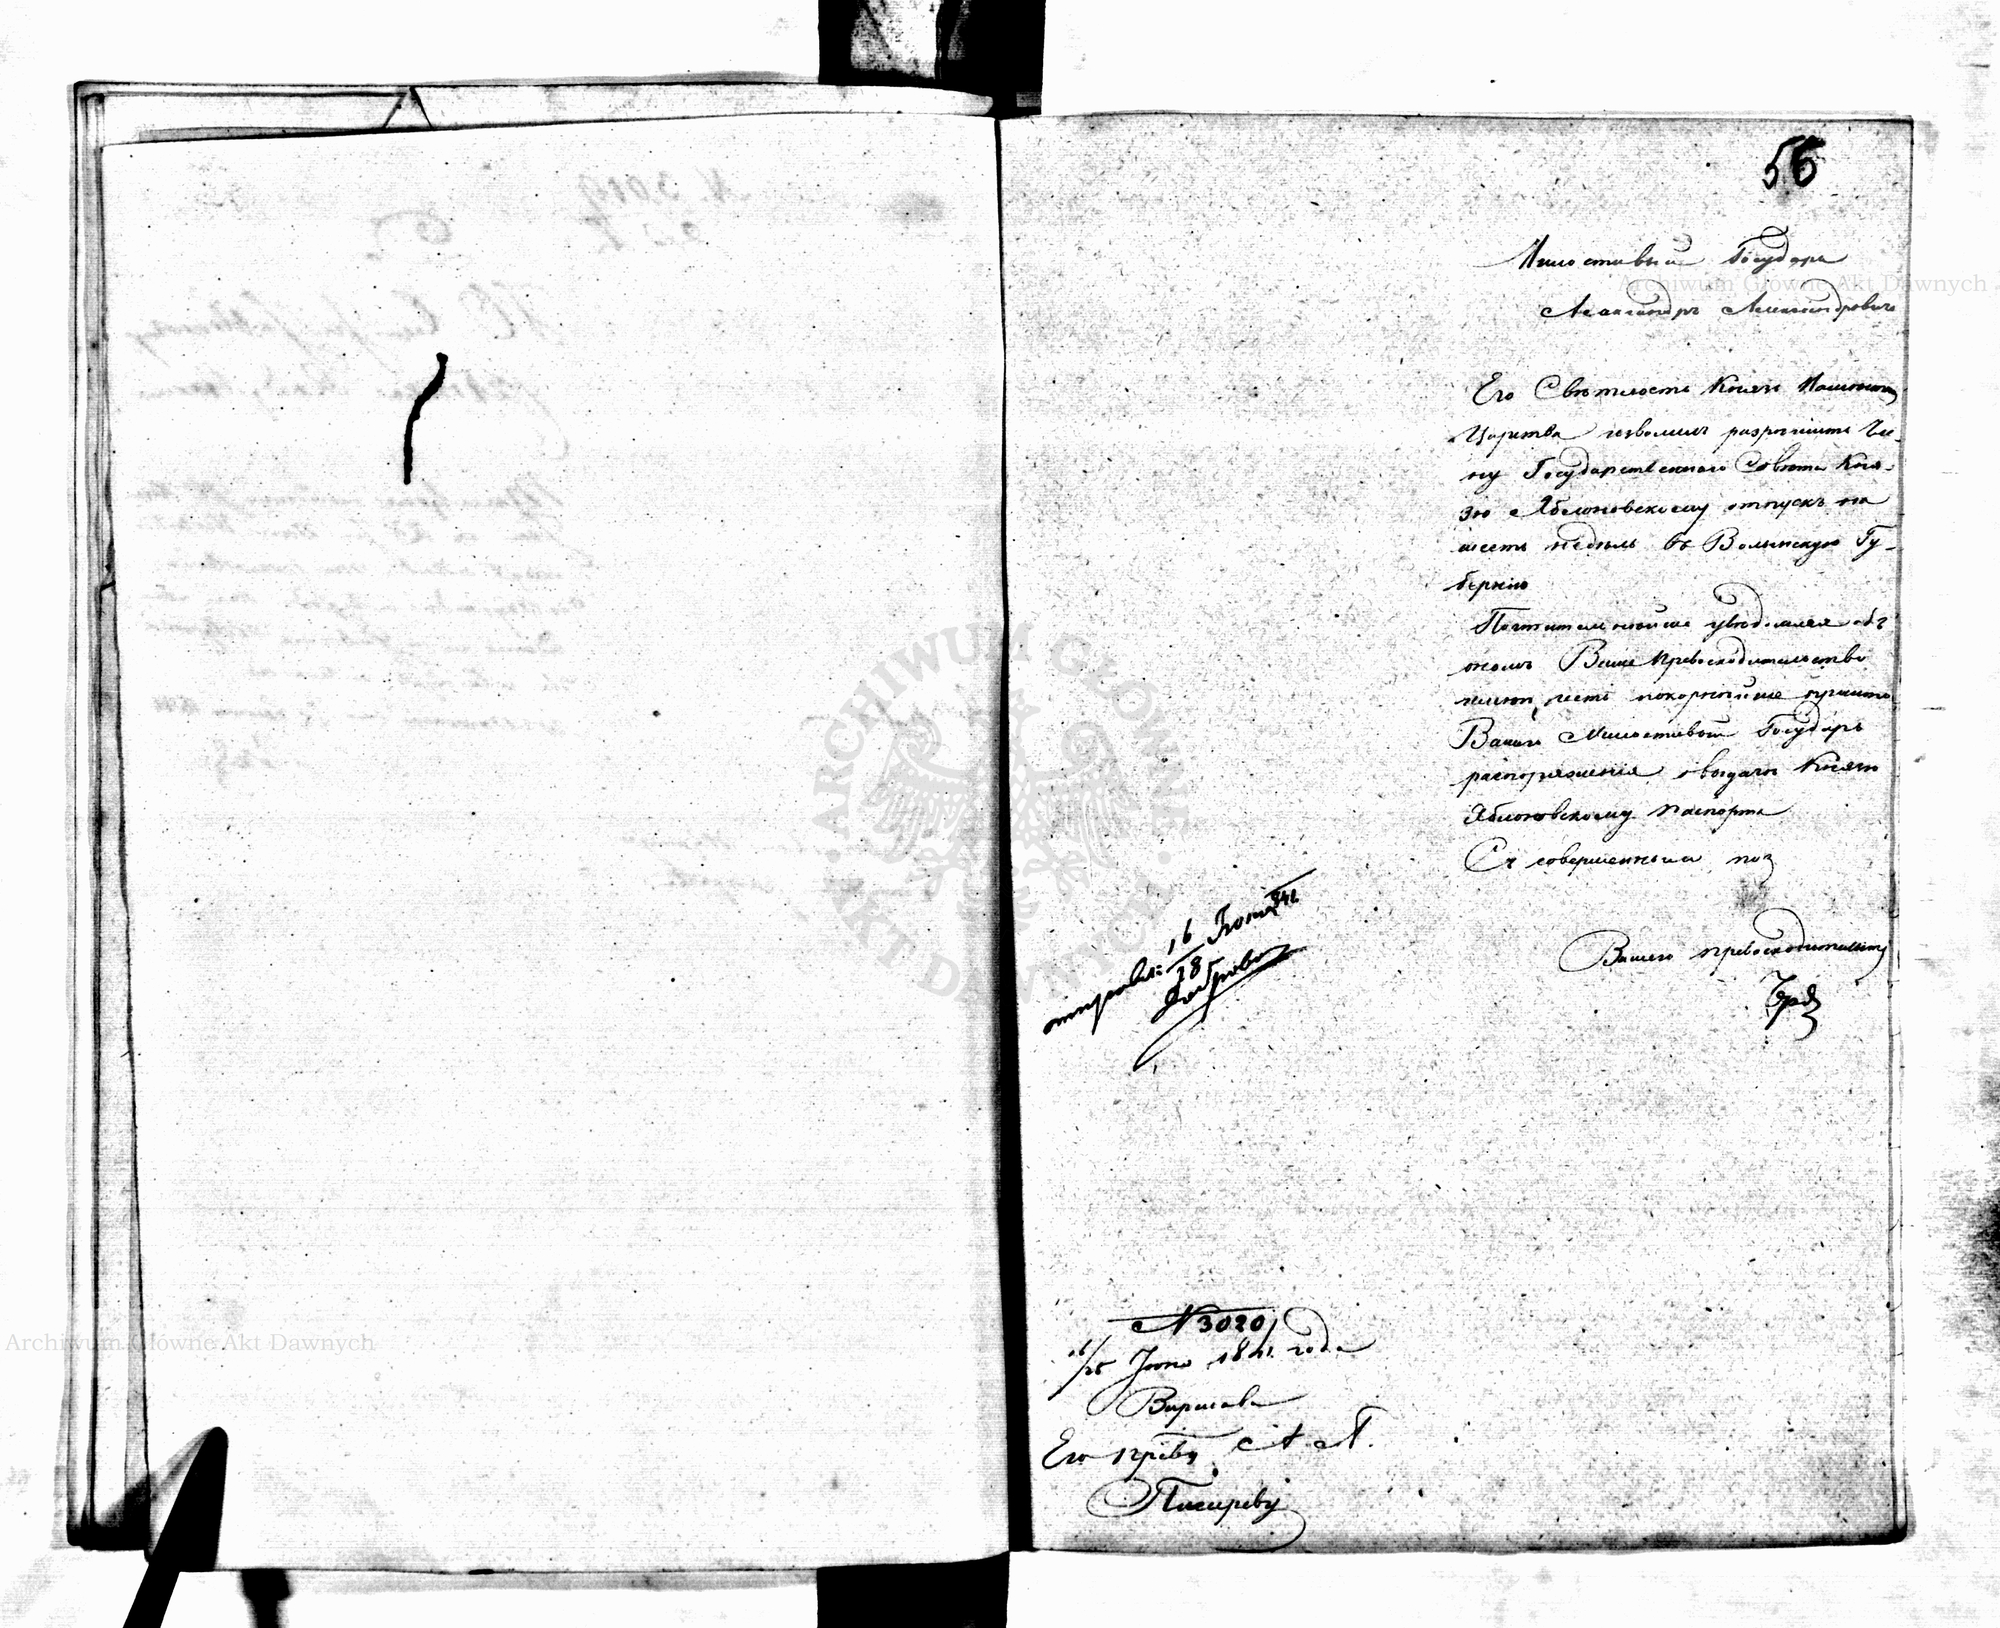 56
Милостивый Государь
Александръ Александровичь
Его Свѣтлость Князь Намѣстн
Царства изволилъ разрѣшить Чле-
ну Государственнаго Совѣта Кня-
зю Яблоновскому отпускъ на
шесть недѣль въ Волынскую Гу-
бернію
Почтительнѣйше увѣдомляя объ
ономъ Ваше Превосходительство
имѣю честь покорнѣйше просить
Вашего Милостивый Государь
распоряженія о выдачѣ Князю
Яблоновскому паспорта
Съ совершеннымъ поч
Вашего Превосходительств
отправл: 16 Іюня 841
28
N 3020
Іюня 1841 года
Варшава
Его Превос А. А.
Писареву
Archiwum Główne Akt Dawnych
Archiwum Główne Akt Dawnych
ARCHIWUM GŁÓWNE AKT DAWNYCH